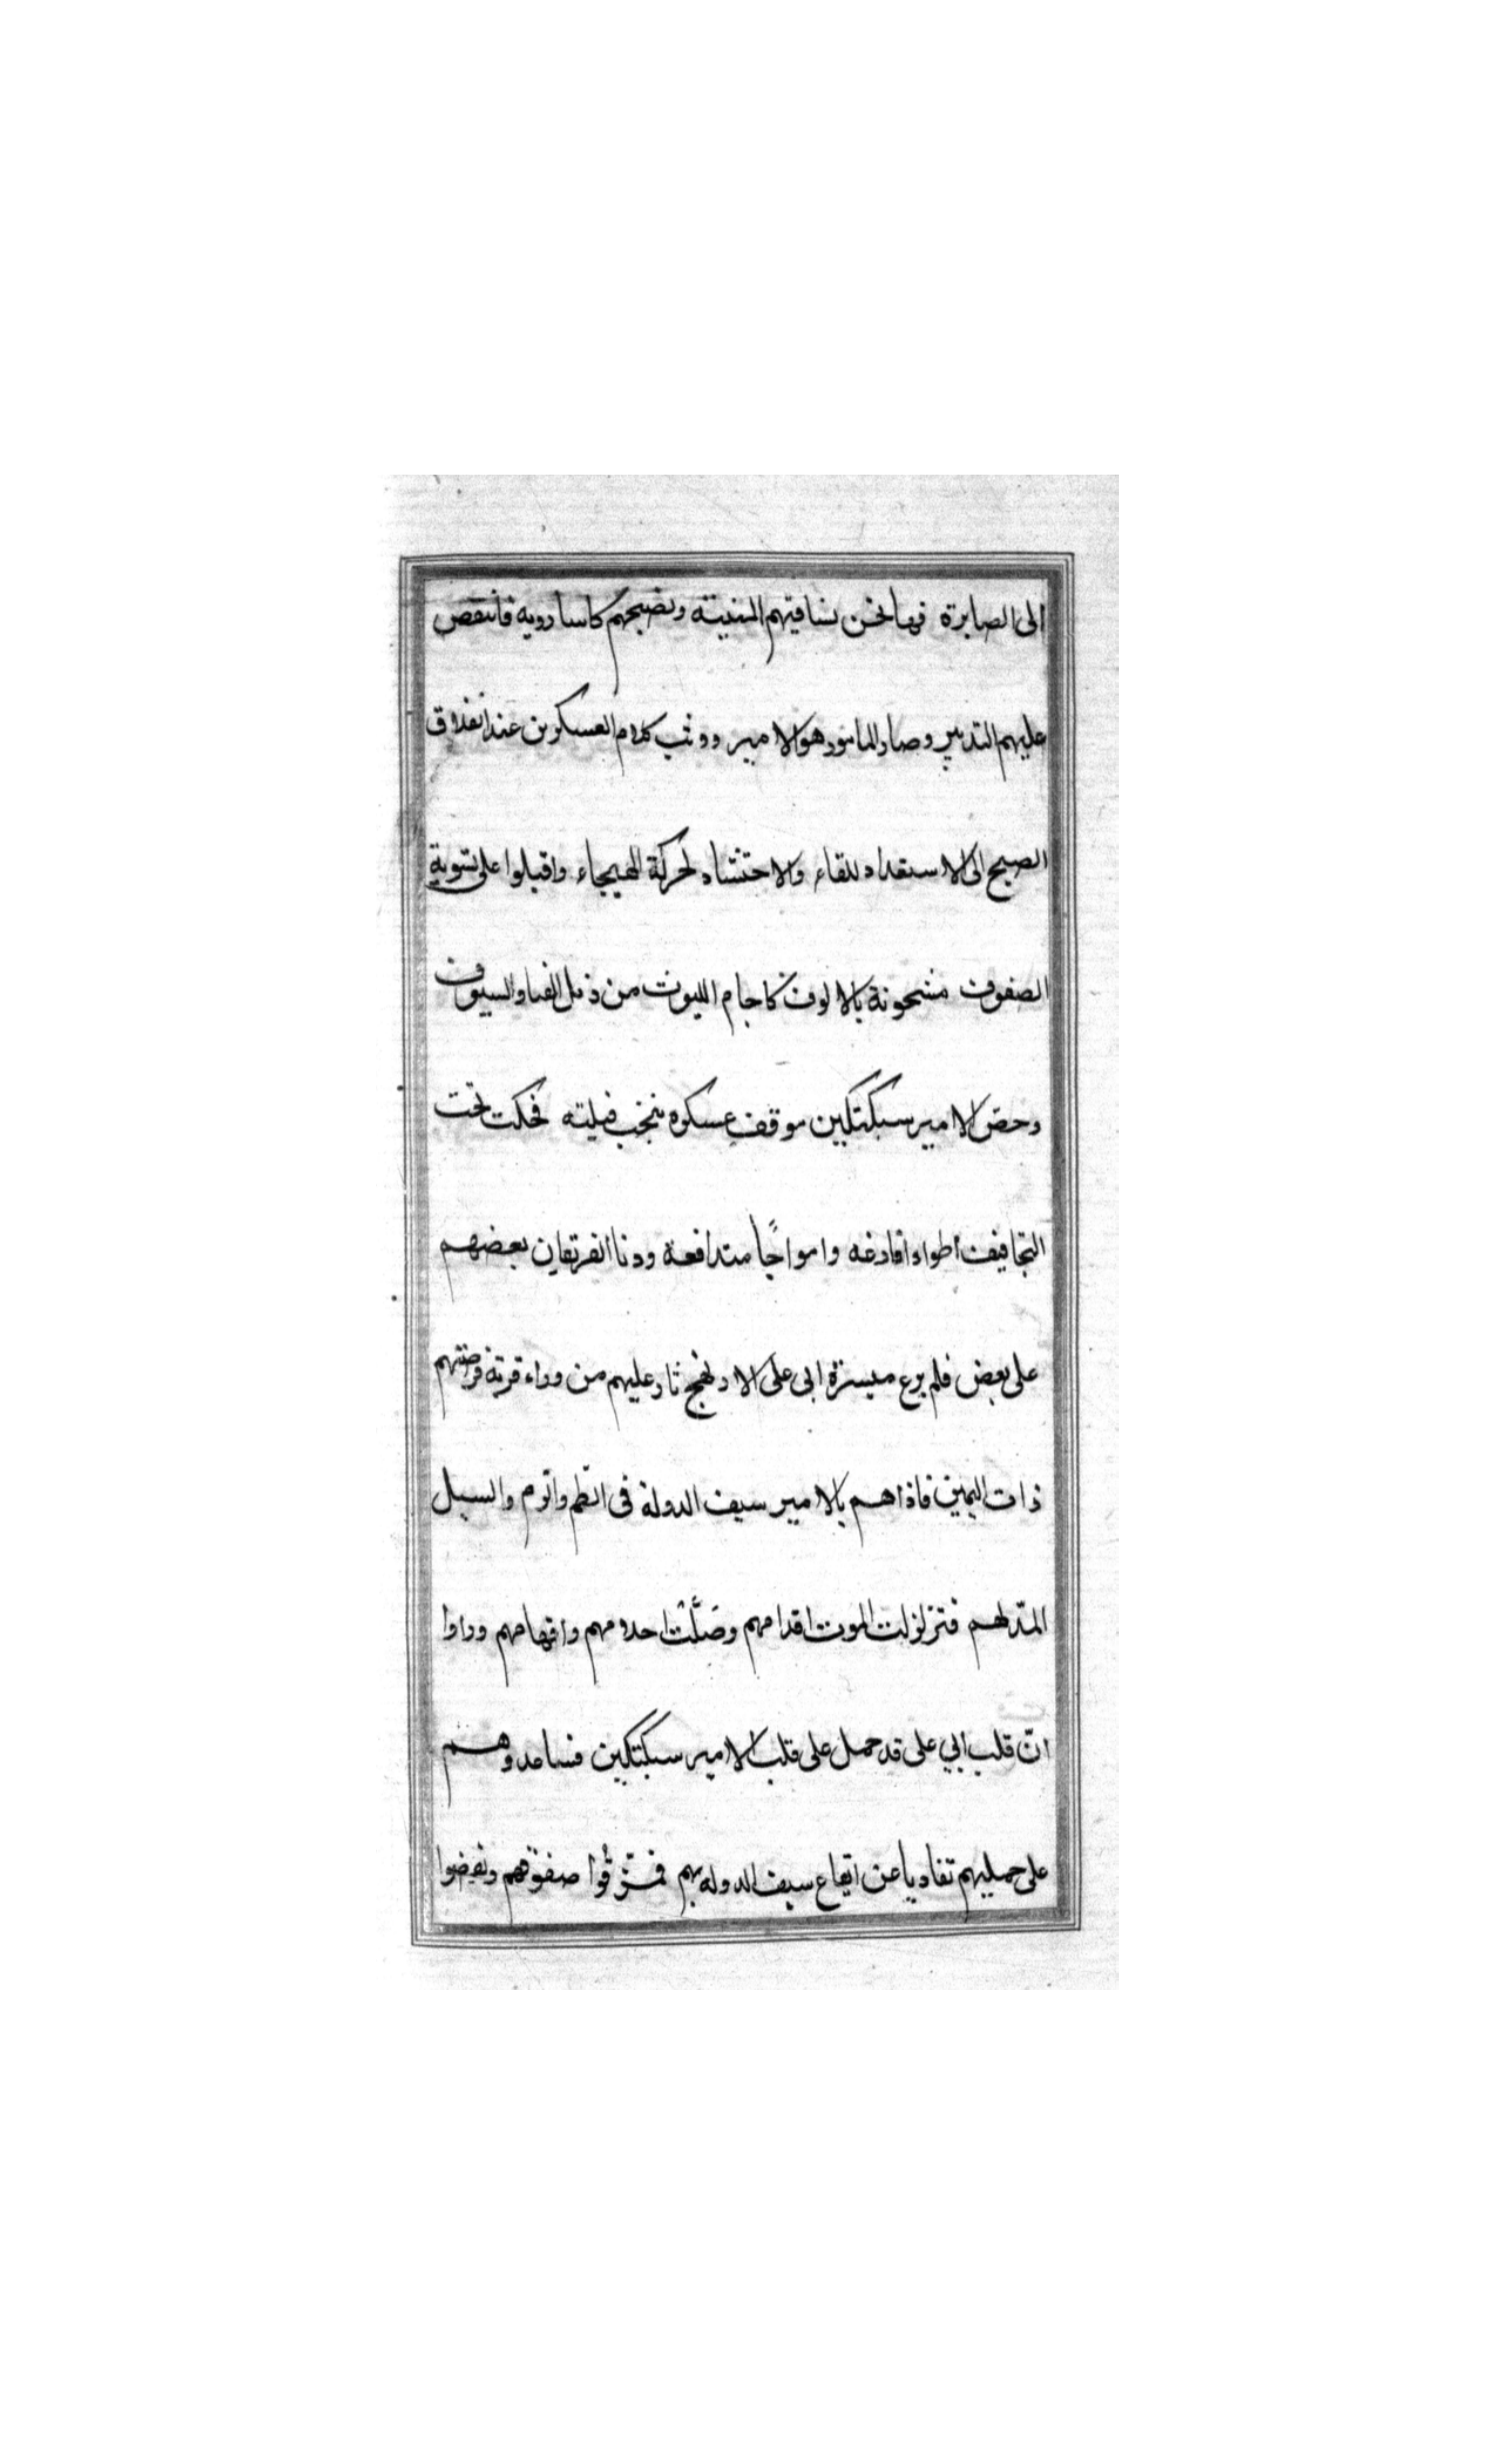 الى الصابرة فها نحن نساقيهم المنية ونصبحهم كاسا روية فانتقض
عليهم التدبير وصار المامور هو الامير ووثب كلام العسكرين عند انفلاق
الصبح الى الاستعداد للقاء والاحتشاد لحركة الهيجاء واقبلوا على تسوية
الصفوف مشحونة بالالوف كاجام الليوث من ذبل القنا والسيوف
وخص الامير سبكتكين موقف عسكره بنخب فيلته فحكت تحت
التجافيف اطوادا فارغه وامواجًا متدافعة ودنا الفريقان بعضهم
على بعض فلم يرع ميسرة ابى على الا رهج ثار عليهم من وراء قرية
ذات اليمين فاذا هم بالامير سيف الدولة فى الطّم والرّم والسيل
المدّلهم فتزلزلت الموت اقدامهم وضلَّتْ احلامهم وافهامهم وراوا
انّ قلب ابي على قد حمل على قلب الامير سبكتكين فساعدوهم
على حمليهم تفاديا عن ايقاع سيف الدوله بهم فمزّقُوا صفوفهم ونفضوا